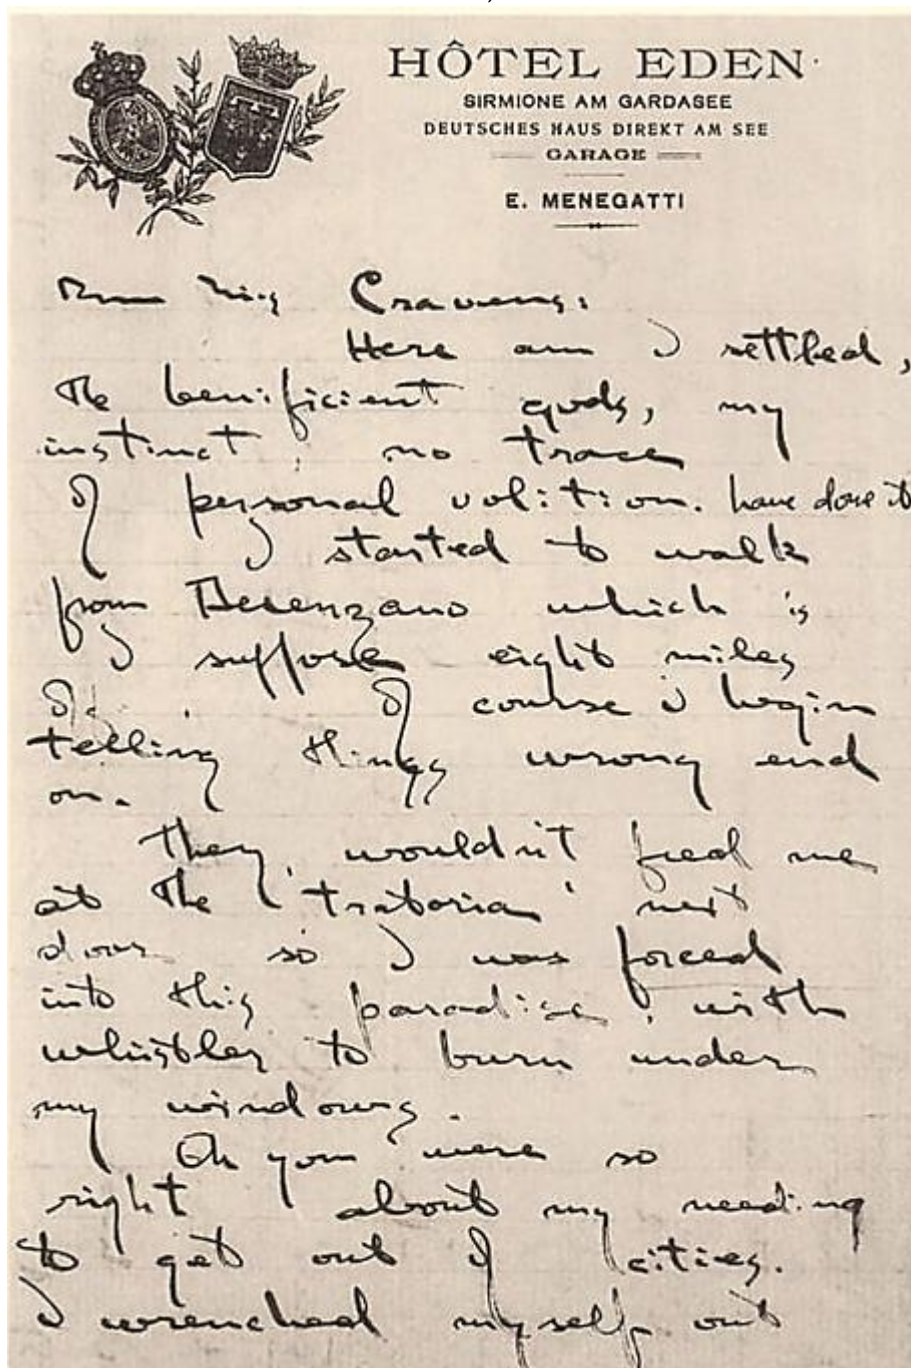 HÔTEL EDEN
SIRMIONE AM GARDASEE
DEUTSCHES HAUS DIREKT AM SEE
GARAGE
E. MENEGATTI
Dear Miss Cravens:
Here am I settled,
The benificient gods, my
instinct, no trace
of personal volition. have done it
I started to walk
from Desenzano which is
I suppose eight miles
of. Of course I begin
telling things wrong end
on.
They wouldn't feed me
at the 'tratoria' next
door so I was forced
into this paradise, with
whistlers to burn under
my windows.
Oh you were so
right about my needing
to get out of cities.
I wrenched myself out